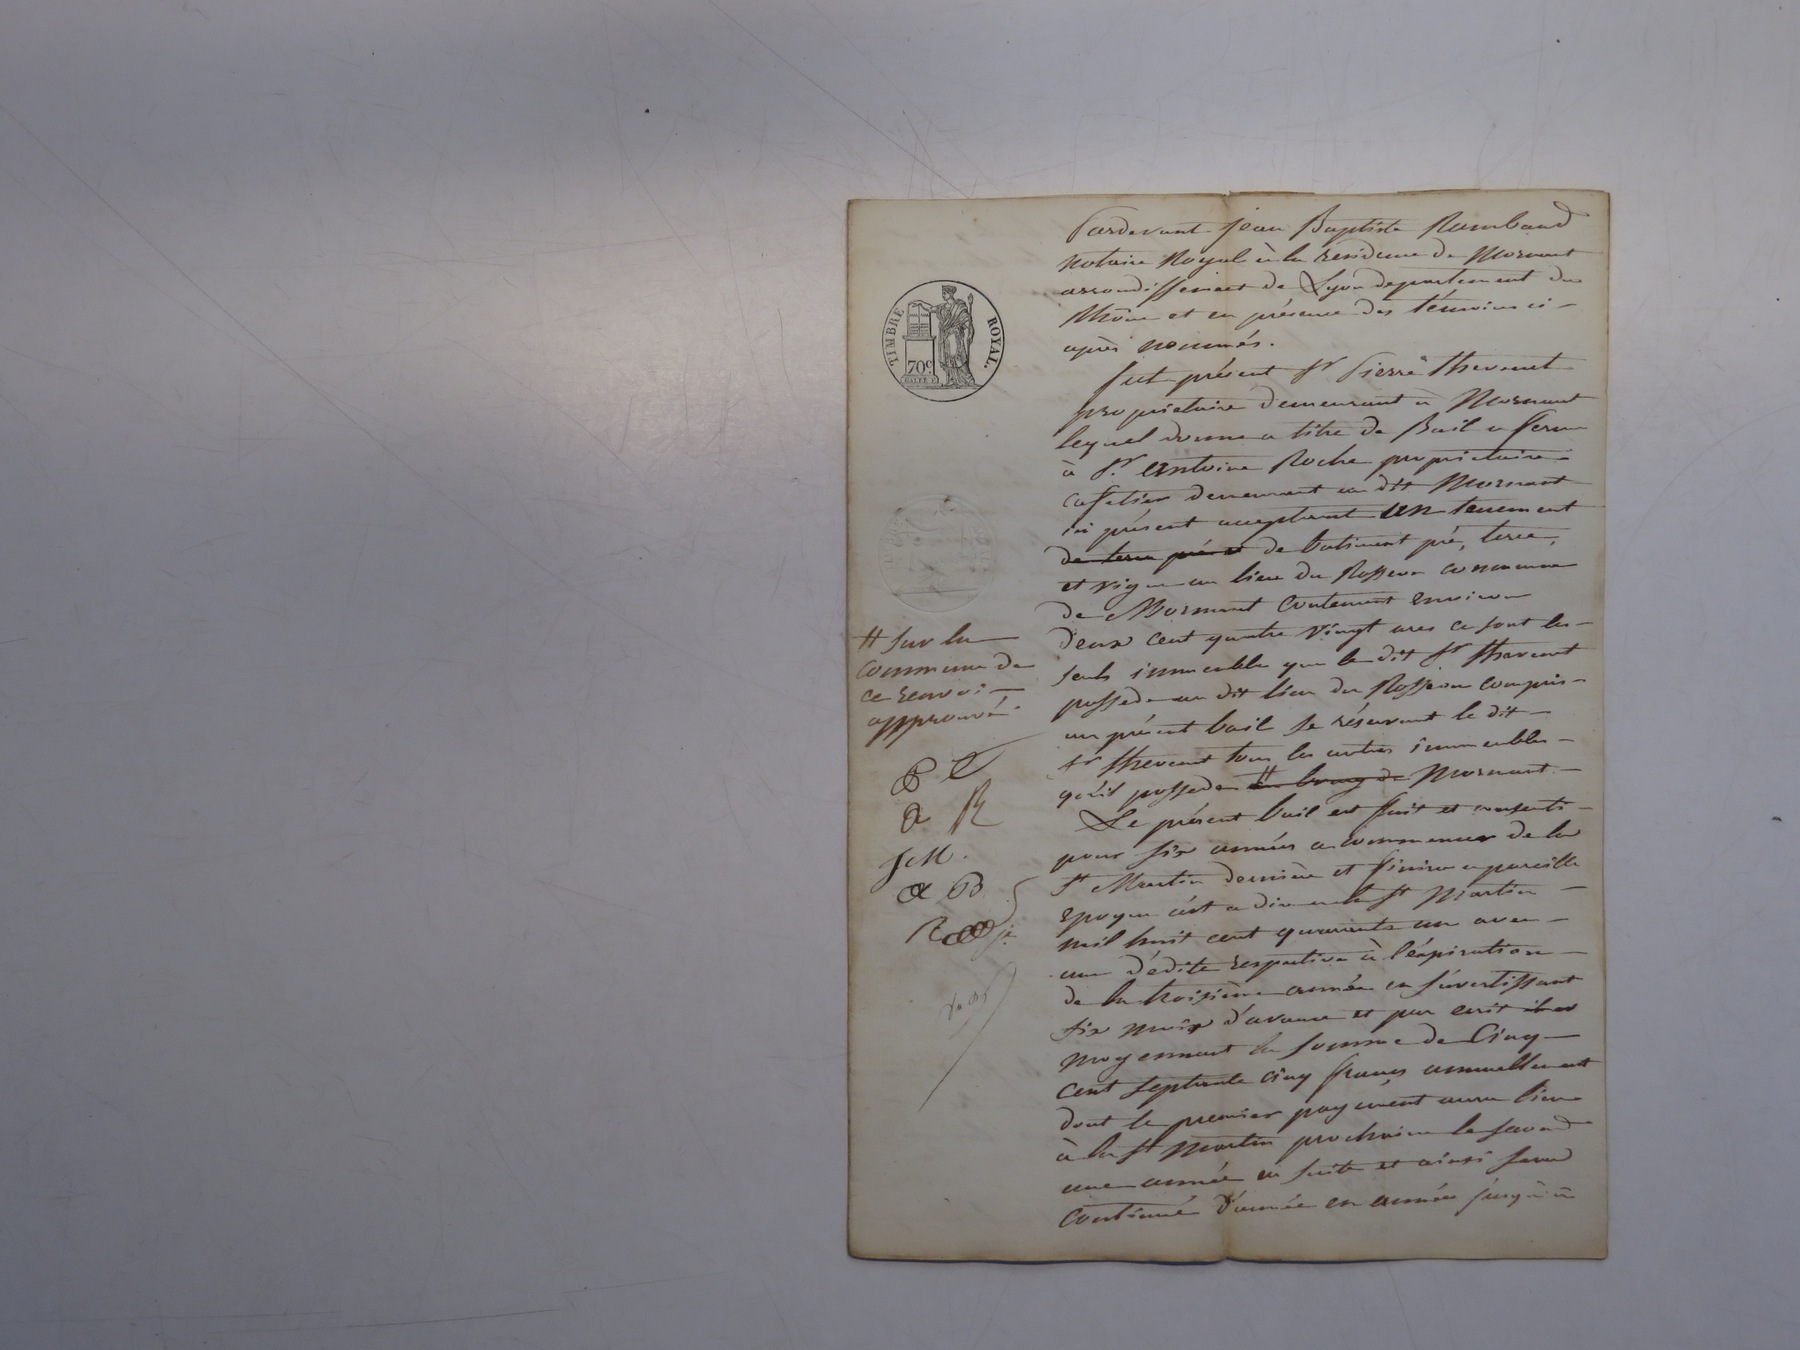 TIMBRE ROYAL.
70c
Pardevant Jean Baptiste Rambaud
notaire Royal à la résidence de Mornant
arrondissement de Lyon departement du
Rhône et en présence des témoins ci-
après nommés.
fut présent Sr Pierre Thevenet
propriétaire demeurant à Mornant
lequel donne a titre de Bail a ferme
à Sr Antoine Roche propriétaire
cafetier demeurant au dit Mornant
ici présent acceptant un tenement
de terre pré et de batiment pré, terre,
et vigne au lieu du Rosseon commune
de Mornant contenant environ
deux cent quatre vingt ares ce sont les
seuls immeubles que le dit Sr Thevenet
possede au dit lieu du Rosseon compris
au présent bail se réservant le dit
Sr Thevenet tous les autres immeubles
qu'il possede # bourg de Mornant.
Le présent bail est fait et consenti
pour six années a commencer de la
St Martin dernière et finira a pareille
epoque c'est a dire a la St Martin
mil huit cent quarante un avec
une dédite respective à l'éxpiration
de la troisième année en s'avertissant
six mois d'avance et par ecrit
moyennant la somme de Cinq
cent septante cinq francs annuellement
dont le premier payement aura lieu
à la St Martin prochaine le second
une année en suite et ainsi sera
continué d'année en année jusqu'à
# sur la
commune de
ce renvoi
approuvé
P T
a R
J M.
a B
R